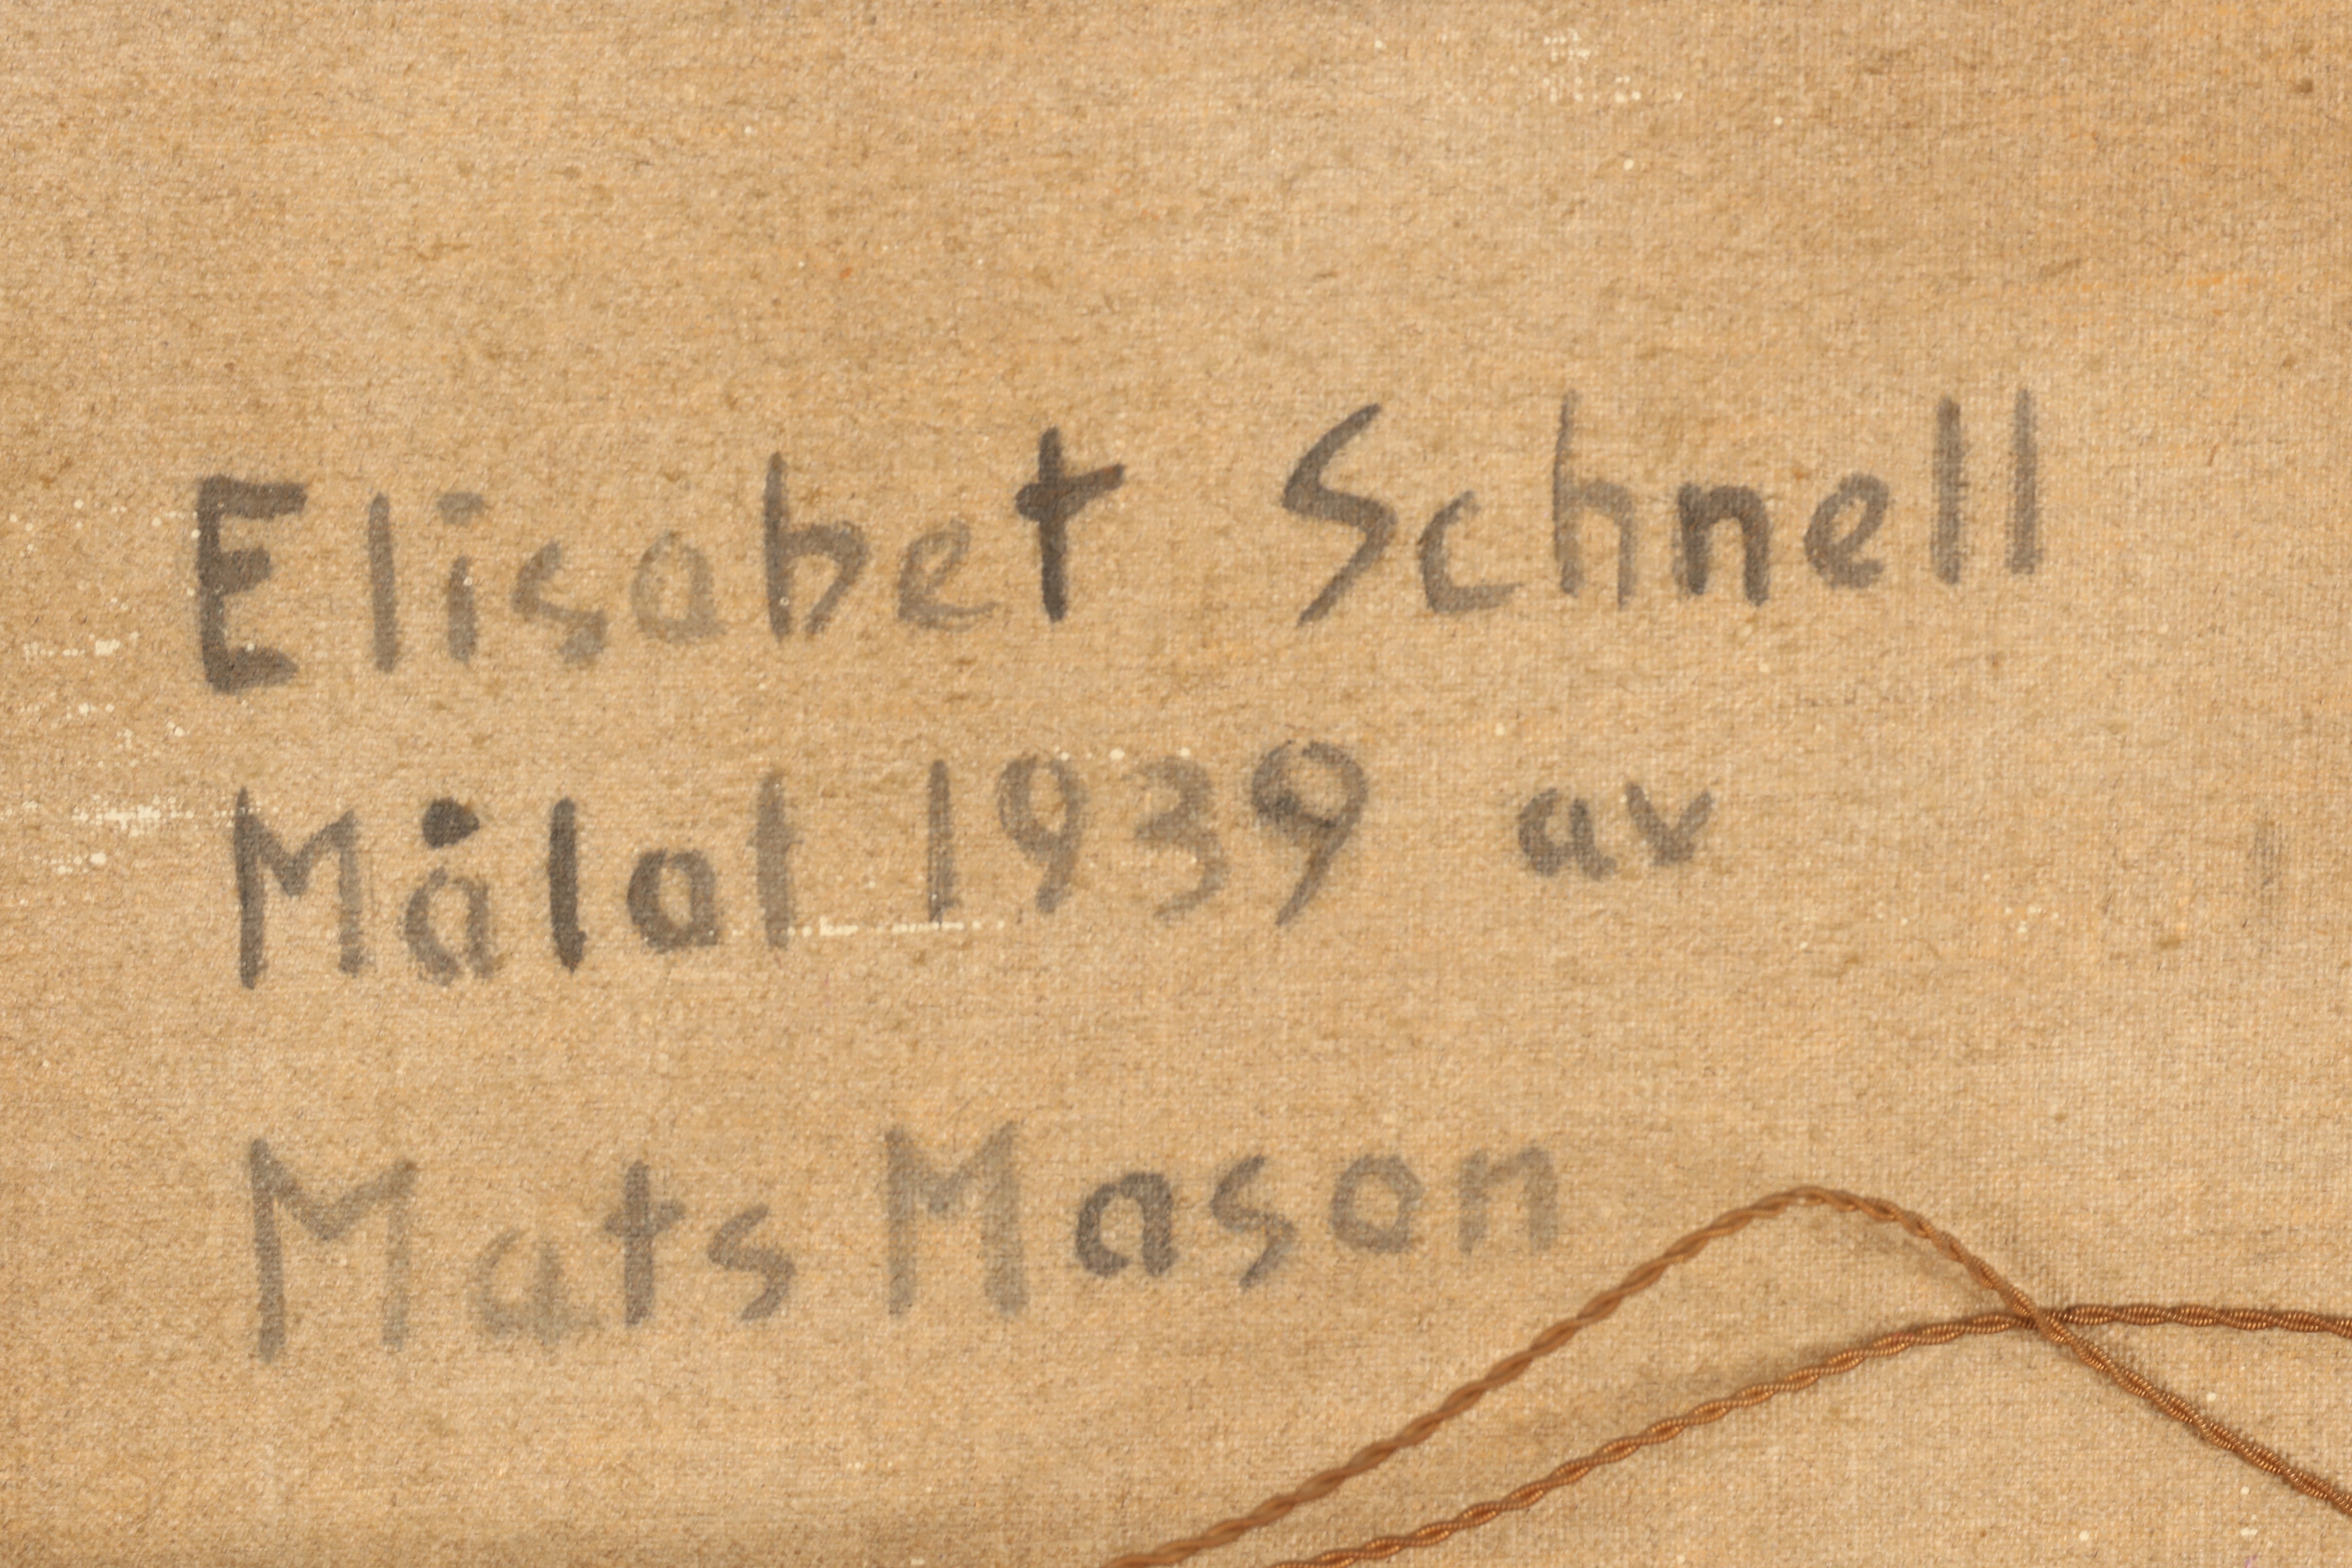 Elisabet Schnell
Målat 1939 av
Mats Mason